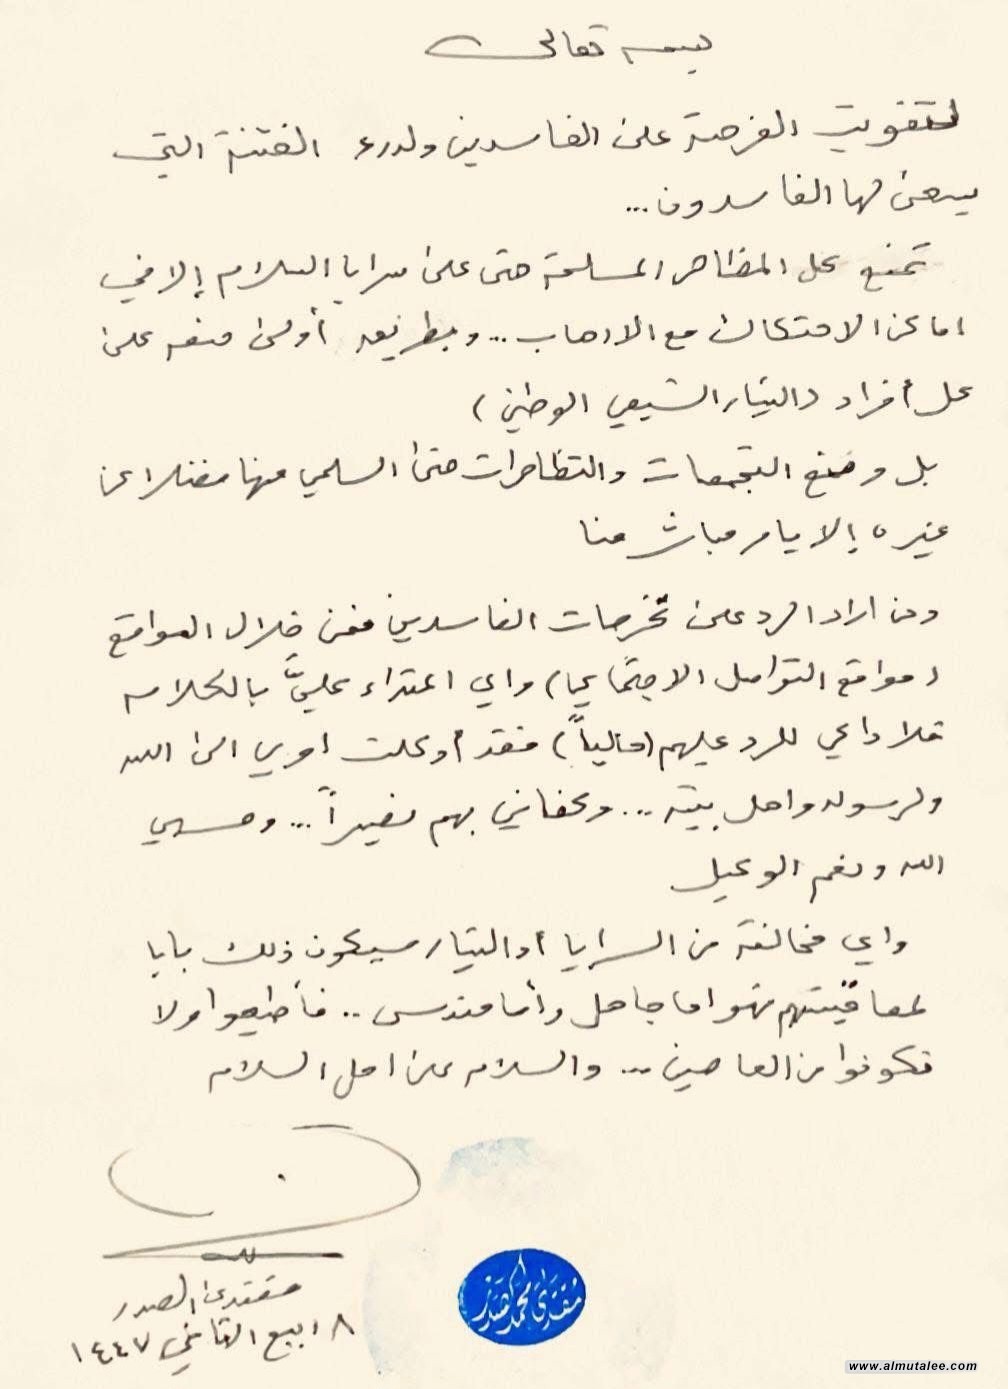 بسمه تعالى
لتفويت الفرصة على الفاسدين ولدرء الفتنة التي
يسعى لها الفاسدون...
تمنع كل المظاهر المسلحة حتى على سرايا السلام إلا في
اماكن الاحتكاك مع الارهاب ... وبطريق أولى منعه على
كل أفراد (التيار الشيعي الوطني)
بل ومنع التجمعات والتظاهرات حتى السلمي منها فضلا عن
غيره إلا بامر مباشر منا
ومن اراد الرد على تخرصات الفاسدين فمن خلال المواقع
(مواقع التواصل الاجتماعي) واي اعتداء عليَّ بالكلام
فلا داعي للرد عليهم (حالياً) فقد أوكلت امري الى الله
ولرسوله واهل بيته ... وكفاني بهم نصيراً ... وحسبي
الله ونعم الوكيل
واي مخالفة من السرايا أو التيار سيكون ذلك بابا
لمعاقبتهم فهو اما جاهل وأما مندس .. فأطيعوا ولا
تكونوا من العاصين ... والسلام على اهل السلام
مقتدى الصدر
٨ ربيع الثاني ١٤٤٧
مقتدى محمد الصدر
www.almutalee.com